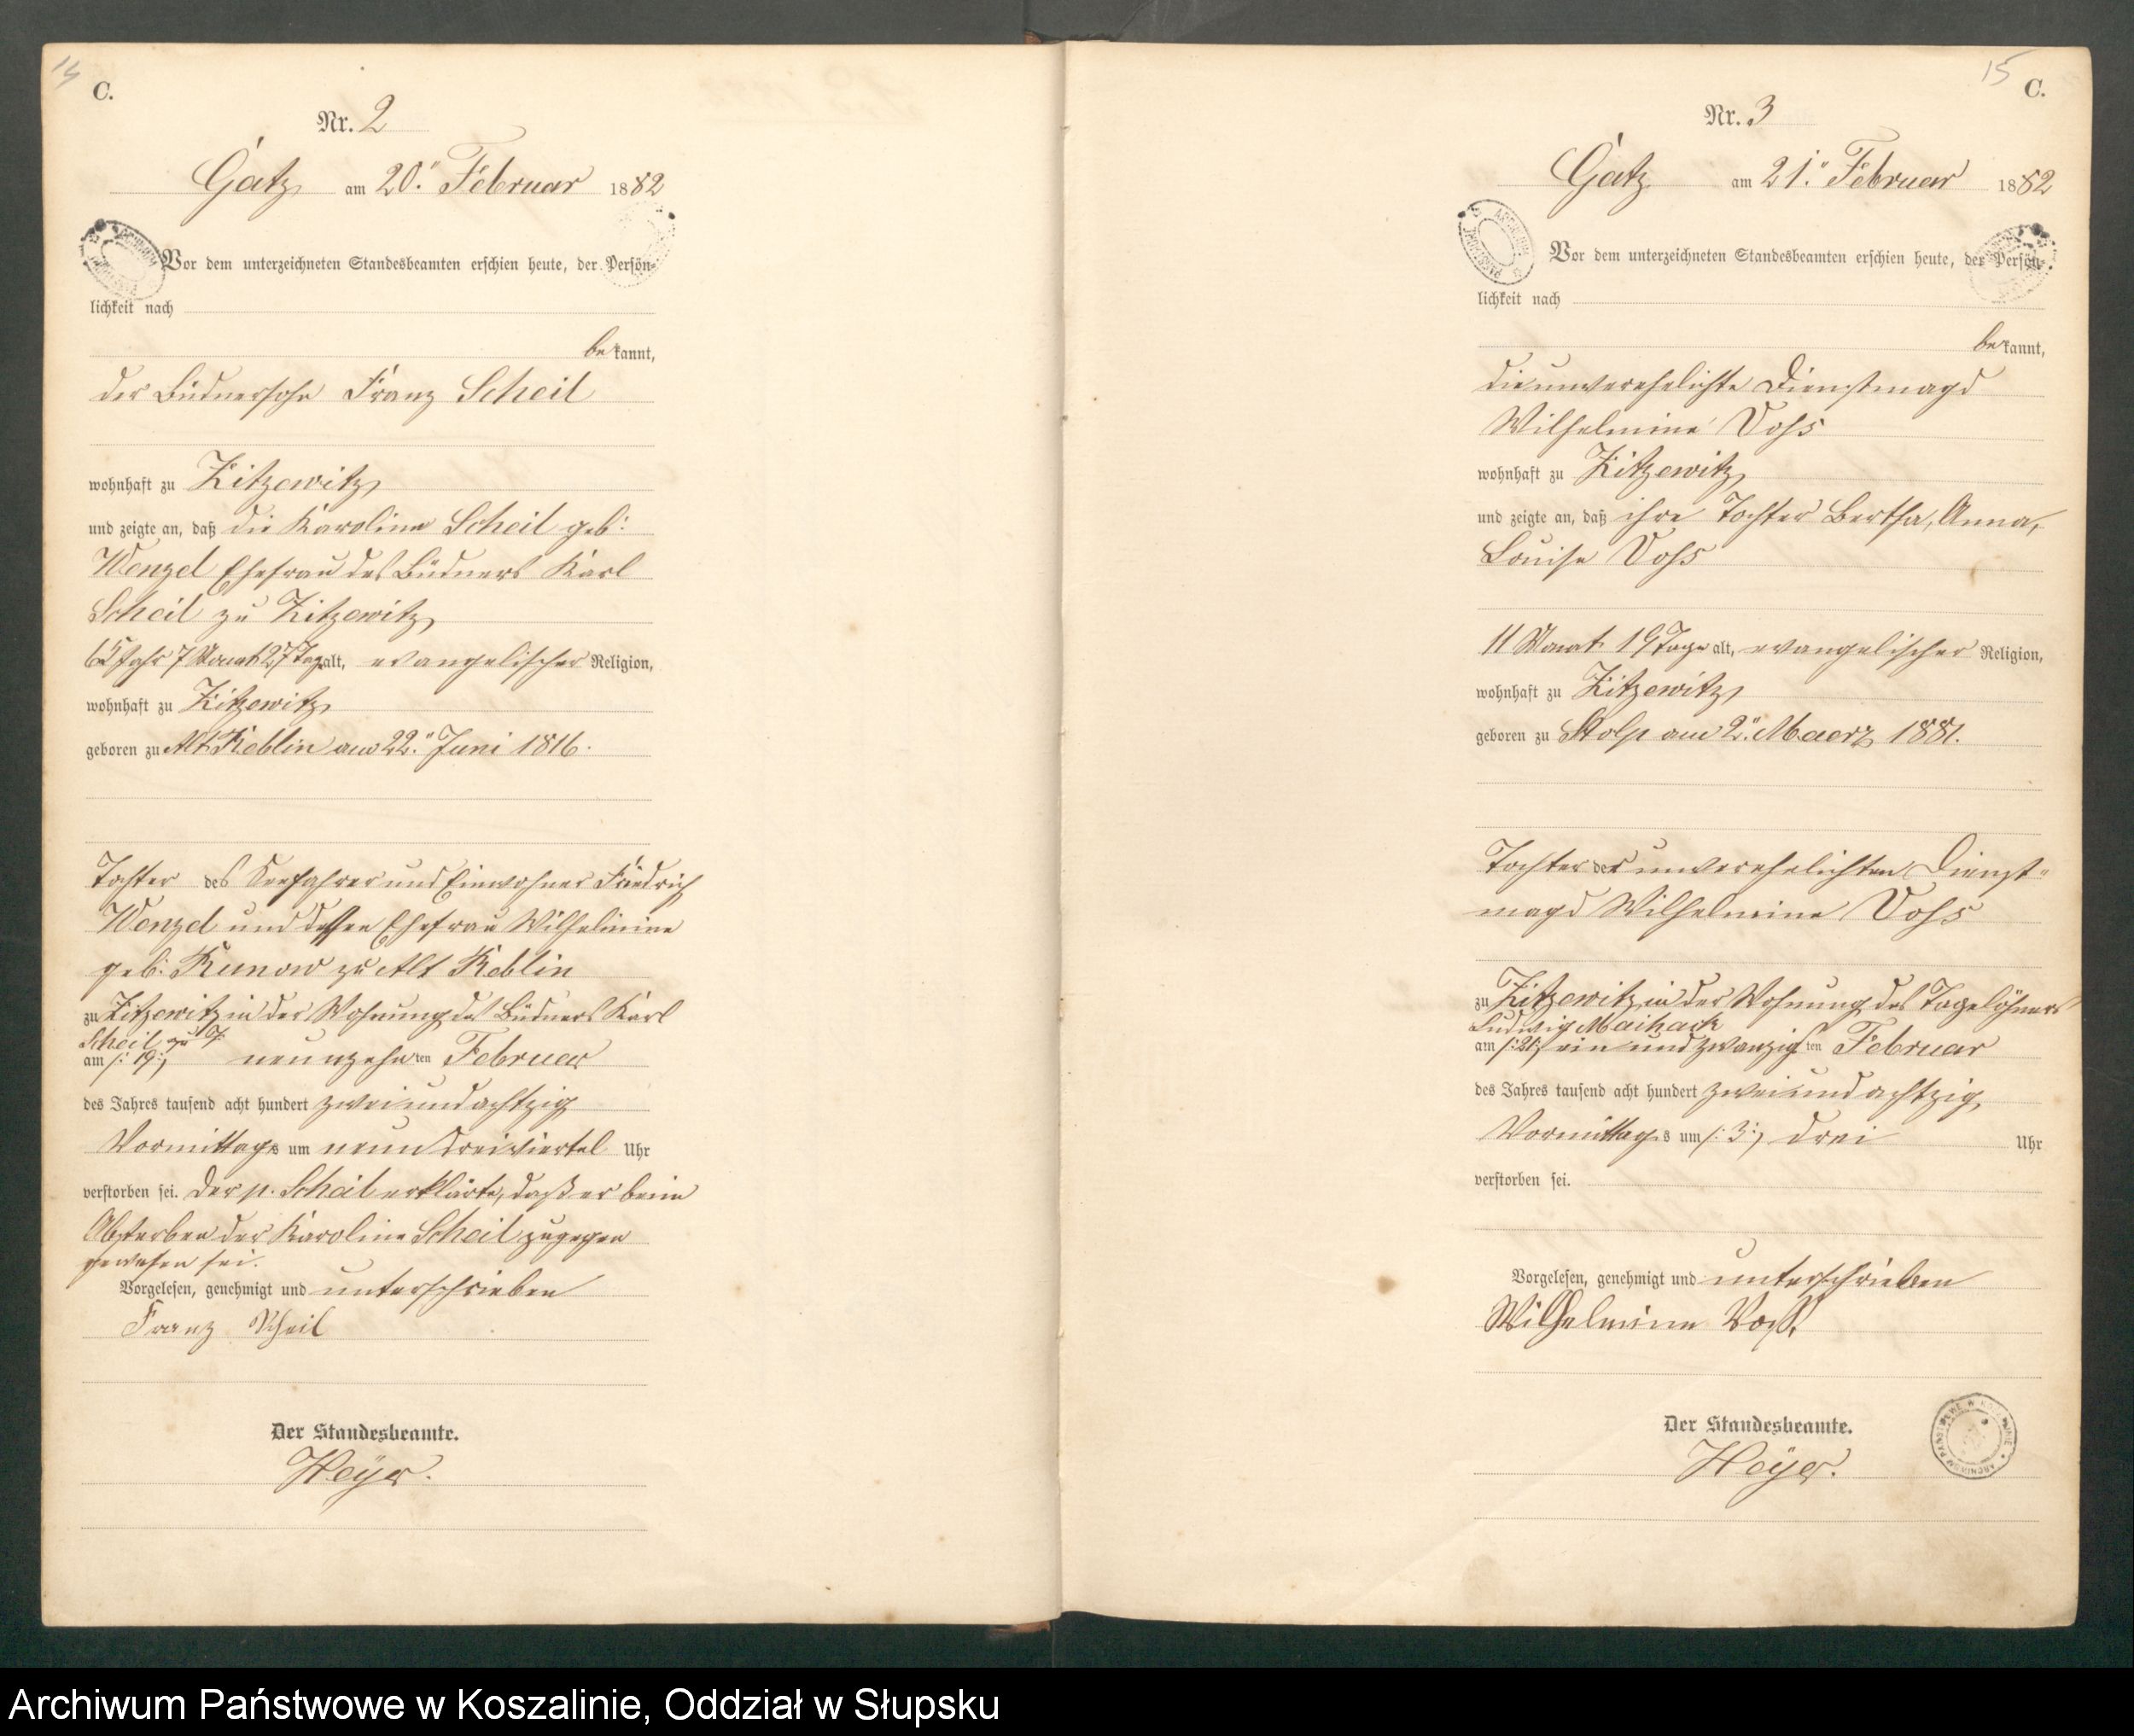 14
C.
Nr. 2
Gatz am 20.ⁿ Februar 1882
Vor dem unterzeichneten Standesbeamten erschien heute, der Persön-
lichkeit nach
bekannt,
der Büdnersohn Franz Scheil
wohnhaft zu Zitzewitz
und zeigte an, daß die Karoline Scheil geb:
Wenzel Ehefrau des Büdners Karl
Scheil zu Zitzewitz
65 Jahr 7 Monat 27 Tage alt, evangelischer Religion,
wohnhaft zu Zitzewitz
geboren zu Alt Keblin am 22.ⁿ Juni 1816.
Tochter des Seefahrer und Einwohner Friedrich
Wenzel und dessen Ehefrau Wilhelmine
geb: Kunow zu Alt Keblin
zu Zitzewitz in der Wohnung des Büdners Karl
Scheil zu Z.
am /: 19 :/ neunzehnten Februar
des Jahres tausend acht hundert zweiundachtzig
Vormittags um neun dreiviertel Uhr
verstorben sei. Der p. Scheil erklärte, daß er beim
Absterben der Karoline Scheil zugegen
gewesen sei.
Vorgelesen, genehmigt und unterschrieben
Franz Scheil
Der Standesbeamte.
Heyer.
15
C.
Nr. 3
Gatz am 21.ⁿ Februar 1882
Vor dem unterzeichneten Standesbeamten erschien heute, der Persön-
lichkeit nach
bekannt,
die unverehelichte Dienstmagd
Wilhelmine Voss
wohnhaft zu Zitzewitz
und zeigte an, daß ihre Tochter Bertha, Anna,
Louise Voss
11 Monat 19 Tage alt, evangelischer Religion,
wohnhaft zu Zitzewitz
geboren zu Stolp am 2.ⁿ Maerz 1881.
Tochter der unverehelichten Dienst-
magd Wilhelmine Voss
zu Zitzewitz in der Wohnung des Tagelöhners
Ludwig Maihack
am /: 21 :/ ein und zwanzigsten Februar
des Jahres tausend acht hundert zweiundachtzig
Vormittags um /: 3 :/ drei Uhr
verstorben sei.
Vorgelesen, genehmigt und unterschrieben
Wilhelmine Voß,
Der Standesbeamte.
Heyer.
Archiwum Państwowe w Koszalinie, Oddział w Słupsku